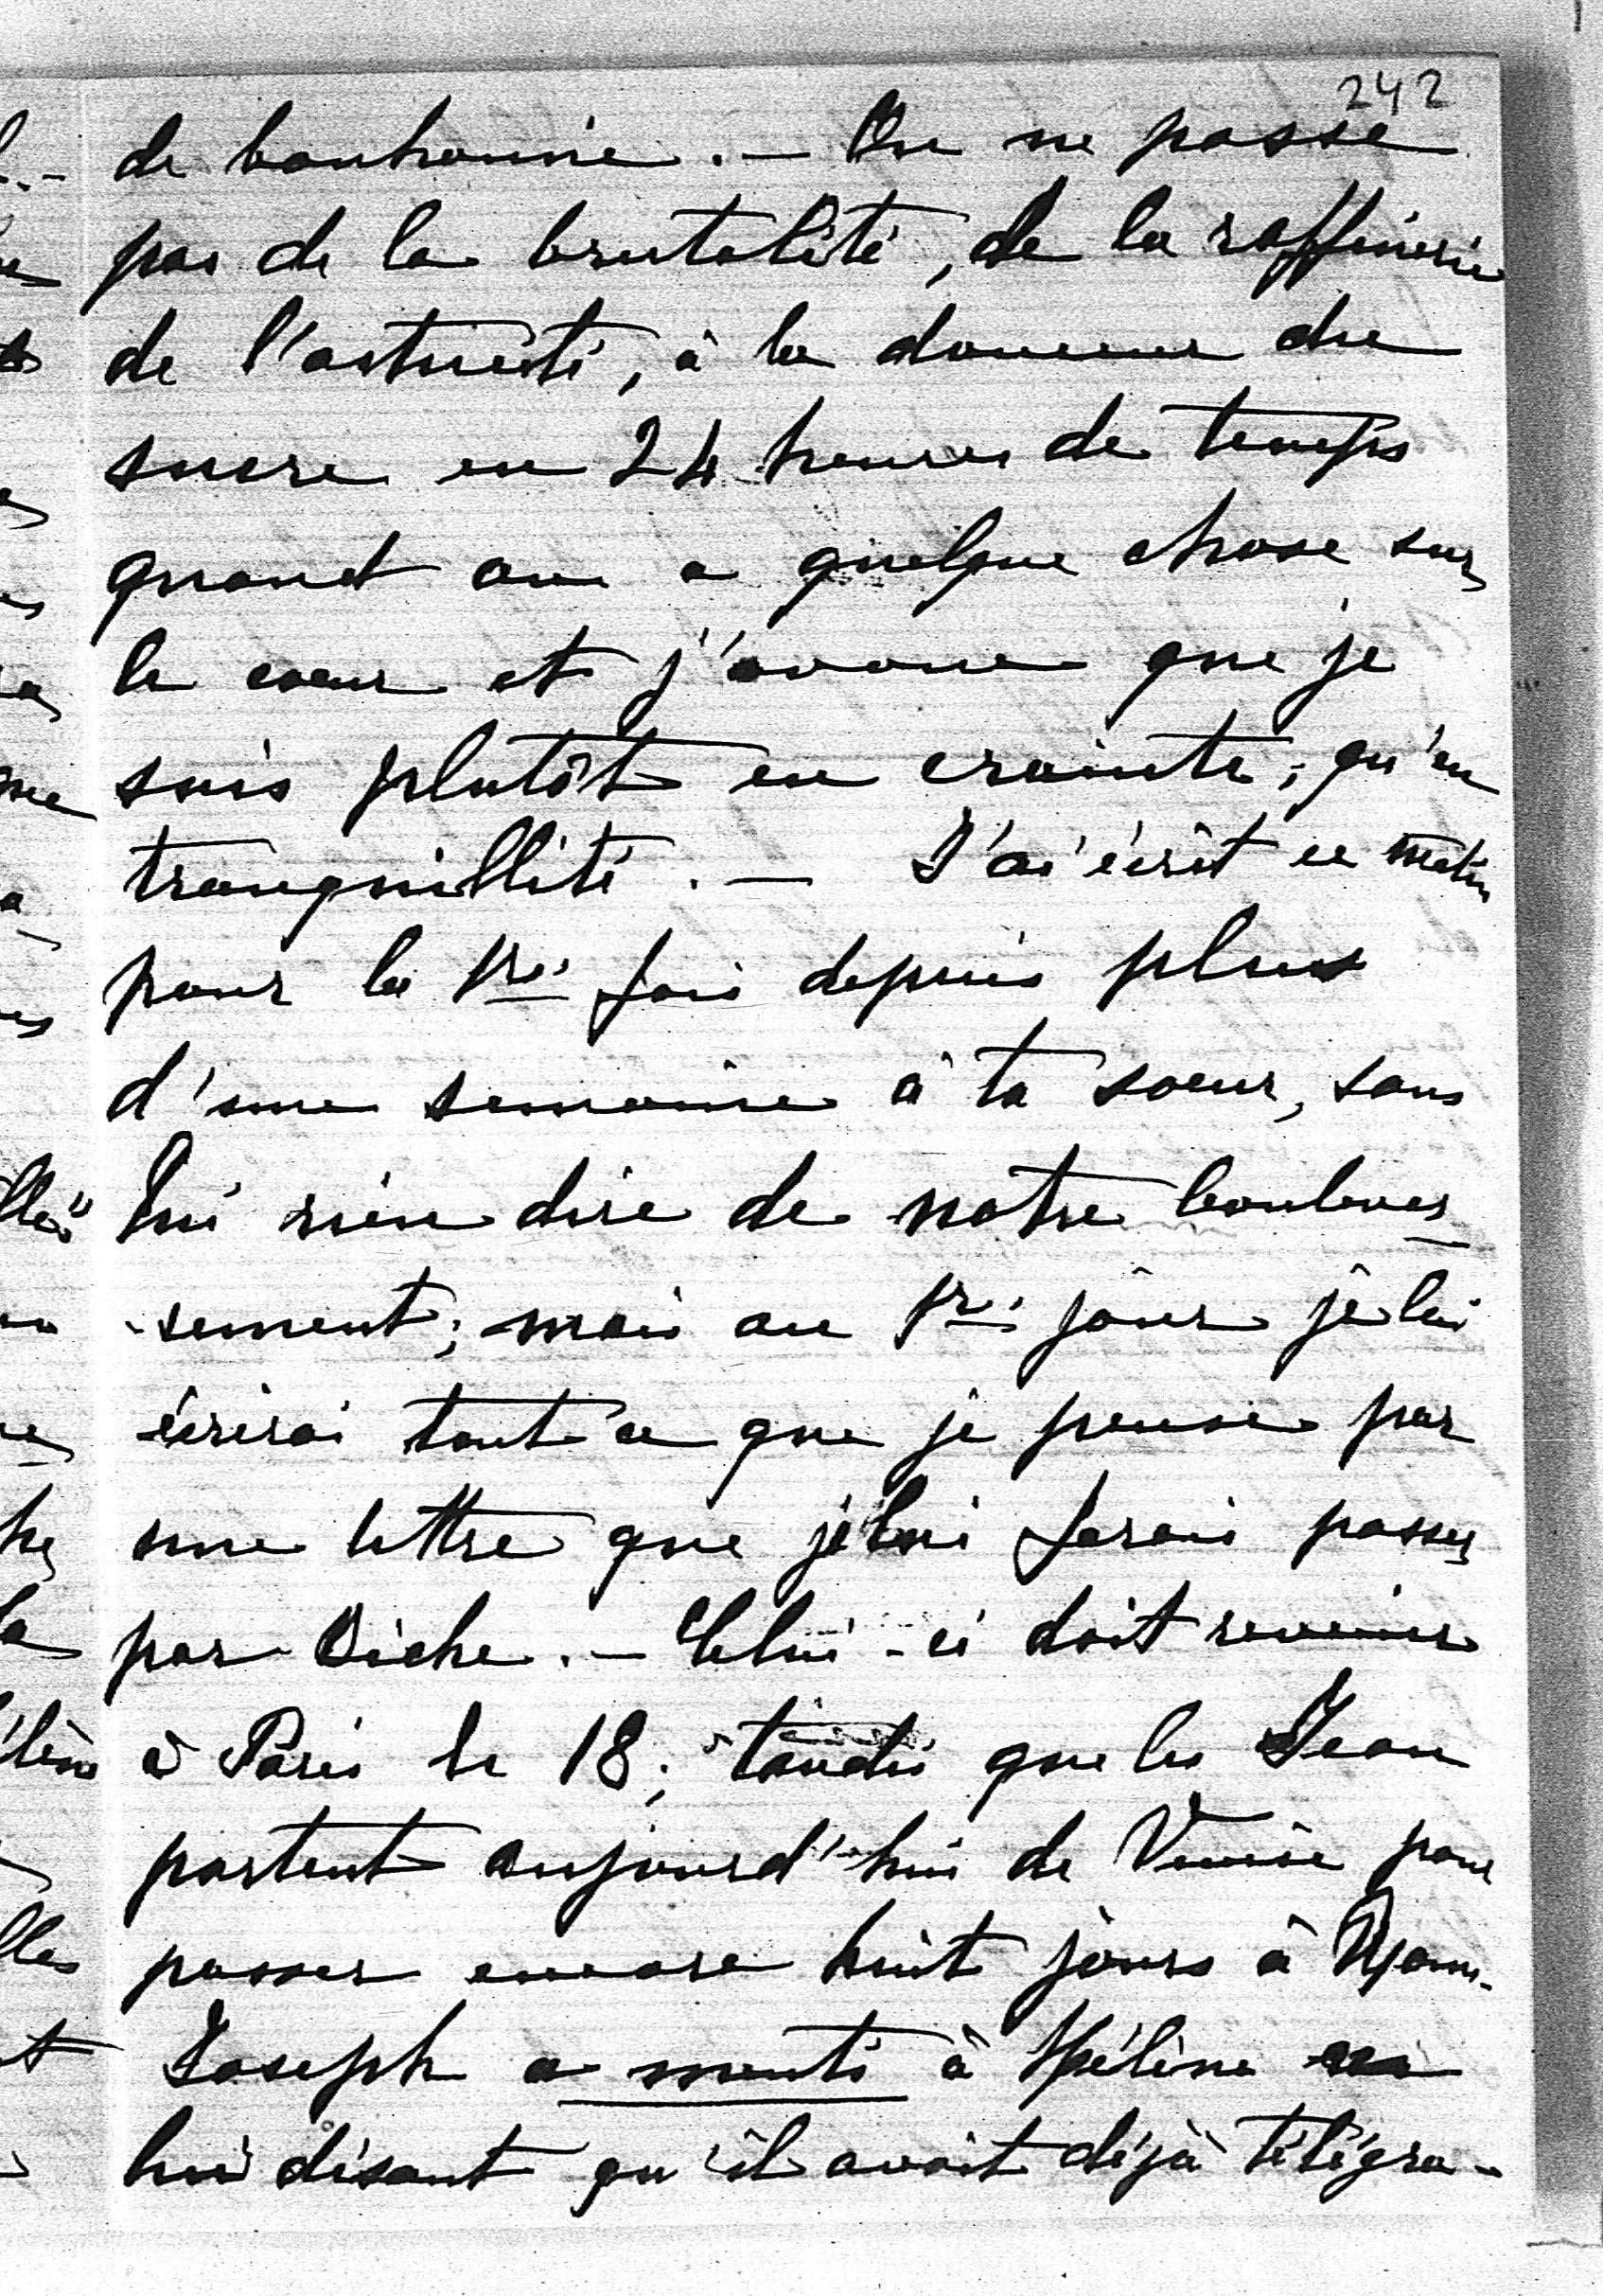 242
de bonhomie. — On ne passe
pas de la brutalité, de la raffinerie
de l'astucité, à la douceur du
sucre en 24 heures de temps
quand on a quelque chose sur
le coeur et j'avoue que je
suis plutôt en crainte, qu'en
tranquillité. — J'ai écrit ce matin
pour la 1re fois depuis plus
d'une semaine à ta soeur, sans
lui rien dire de notre boulever
-sement; mais au 1er jour je lui
écrirai tout ce que je pense par
une lettre que je lui ferais passer
par Diche. — Celui-ci doit revenir
à Paris le 18; tandis que les Jean
partent aujourd'hui de Venise pour
passer encore huit jours à
Joseph a menti à Hélène en
lui disant qu'il avait déjà télégra-